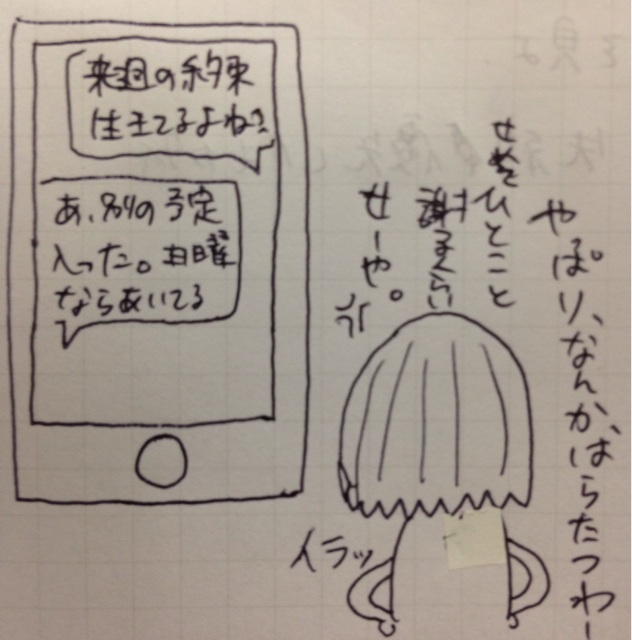 来週の約束
生きてるよね?
あ、別の予定
入った。日曜
ならあいてる
やぱり、なんか、はらたつわー
せめてひとこと
謝るくらい
せーや。
イラッ